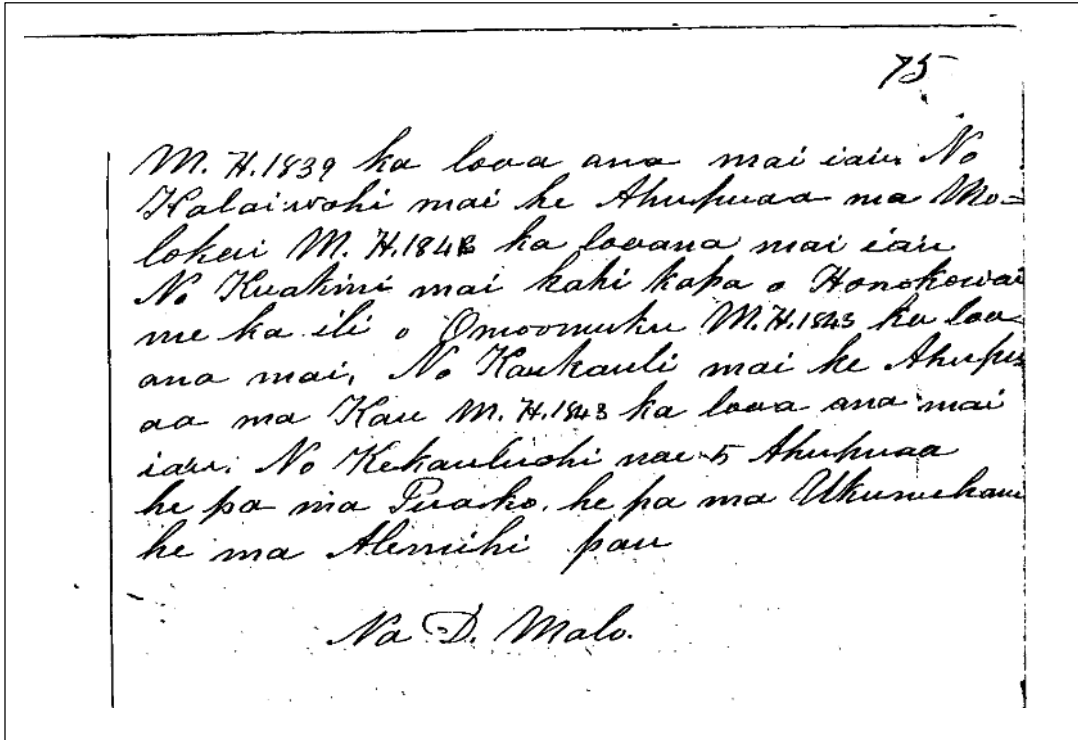 75
M. H. 1839 ka loaa ana mai iau. No
Kalaiwohi mai he Ahupuaa ma Mo=
lokai M. H. 184 ka loaana mai iau
No Kuakini mai kahi kapa o Honokowai
me ka ili o Omoomuku M. H. 1843 ka loa
ana mai, No Kaukauli mai he Ahupu
aa ma Kau M. H. 1843 ka loaa ana mai
iau. No Kekauluohi nae 5 Ahupuaa
he pa ma Puako, he pa ma
he ma Alemihi pau
Na D. Malo.